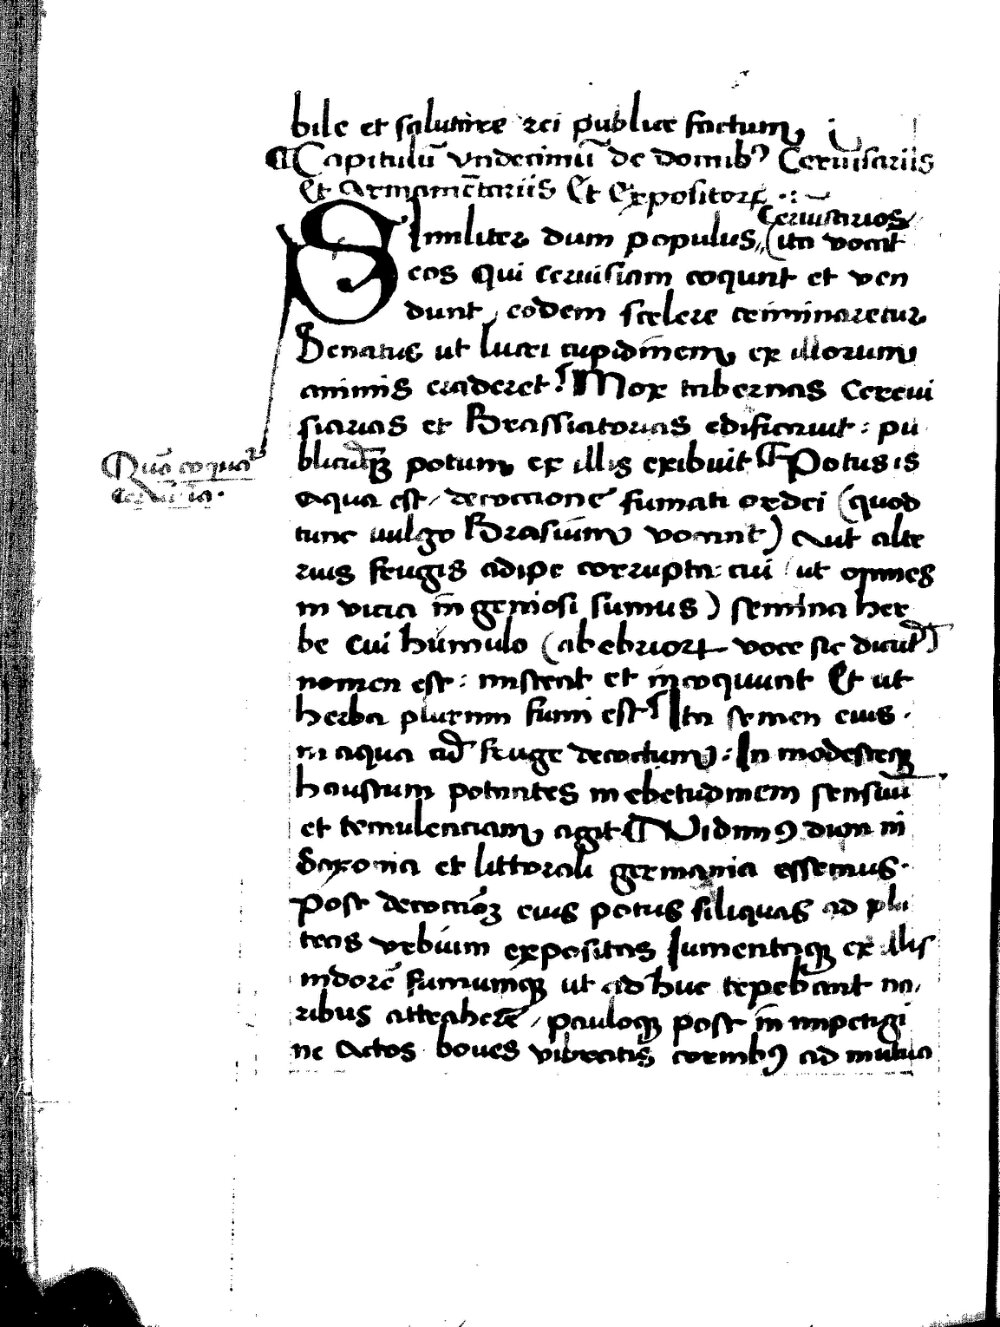 bile et salutare rei publice factum
Capitulū vndecimū de domibꝰ Ceruisariis
Et Armamētariis Et Expositorꝝ
Ceruisarios
Similiter dum populus (ita vocāt
eos qui ceruisiam coqunt et ven
dunt, eodem scelere criminaretur
Senatus ut lucri cupidinem ex illorum
animis eraderet: Mox tabernas Cereui
siarias et Brassiatorias edificauit: pu
blicūqꝫ potum ex illis exibuit Potus is
aqua est, decoctione fumati ordei (quod
tunc uulgo Brasium vocant) Aut alte
rius frugis adipe corrupta: cui (ut omnes
in vicia ingeniosi sumus) semina her
be cui humulo (ab ebriorꝝ voce sic dicūt)
nomen est: miscent et incoquunt Et ut
herba plurimi fumi est: Ita semen eius
in aqua ad fruge decoctum: In modesteqꝫ
haustum potantes in ebetudinem sensuū
et temulenciam agit Vidimꝰ dum in
Saxonia et littorali germania essemus
Post decoctiōꝫ eius potus siliquas ad pla
teas vrbium expositas Iumentaqꝫ ex illis
indorē fumumqꝫ ut ad huc tepebant na
ribus attrahere, pauloqꝫ post in impetigi
ne Actos boues vibratis cornibꝰ ad mutua
Quō coquat̄
ceruisia.